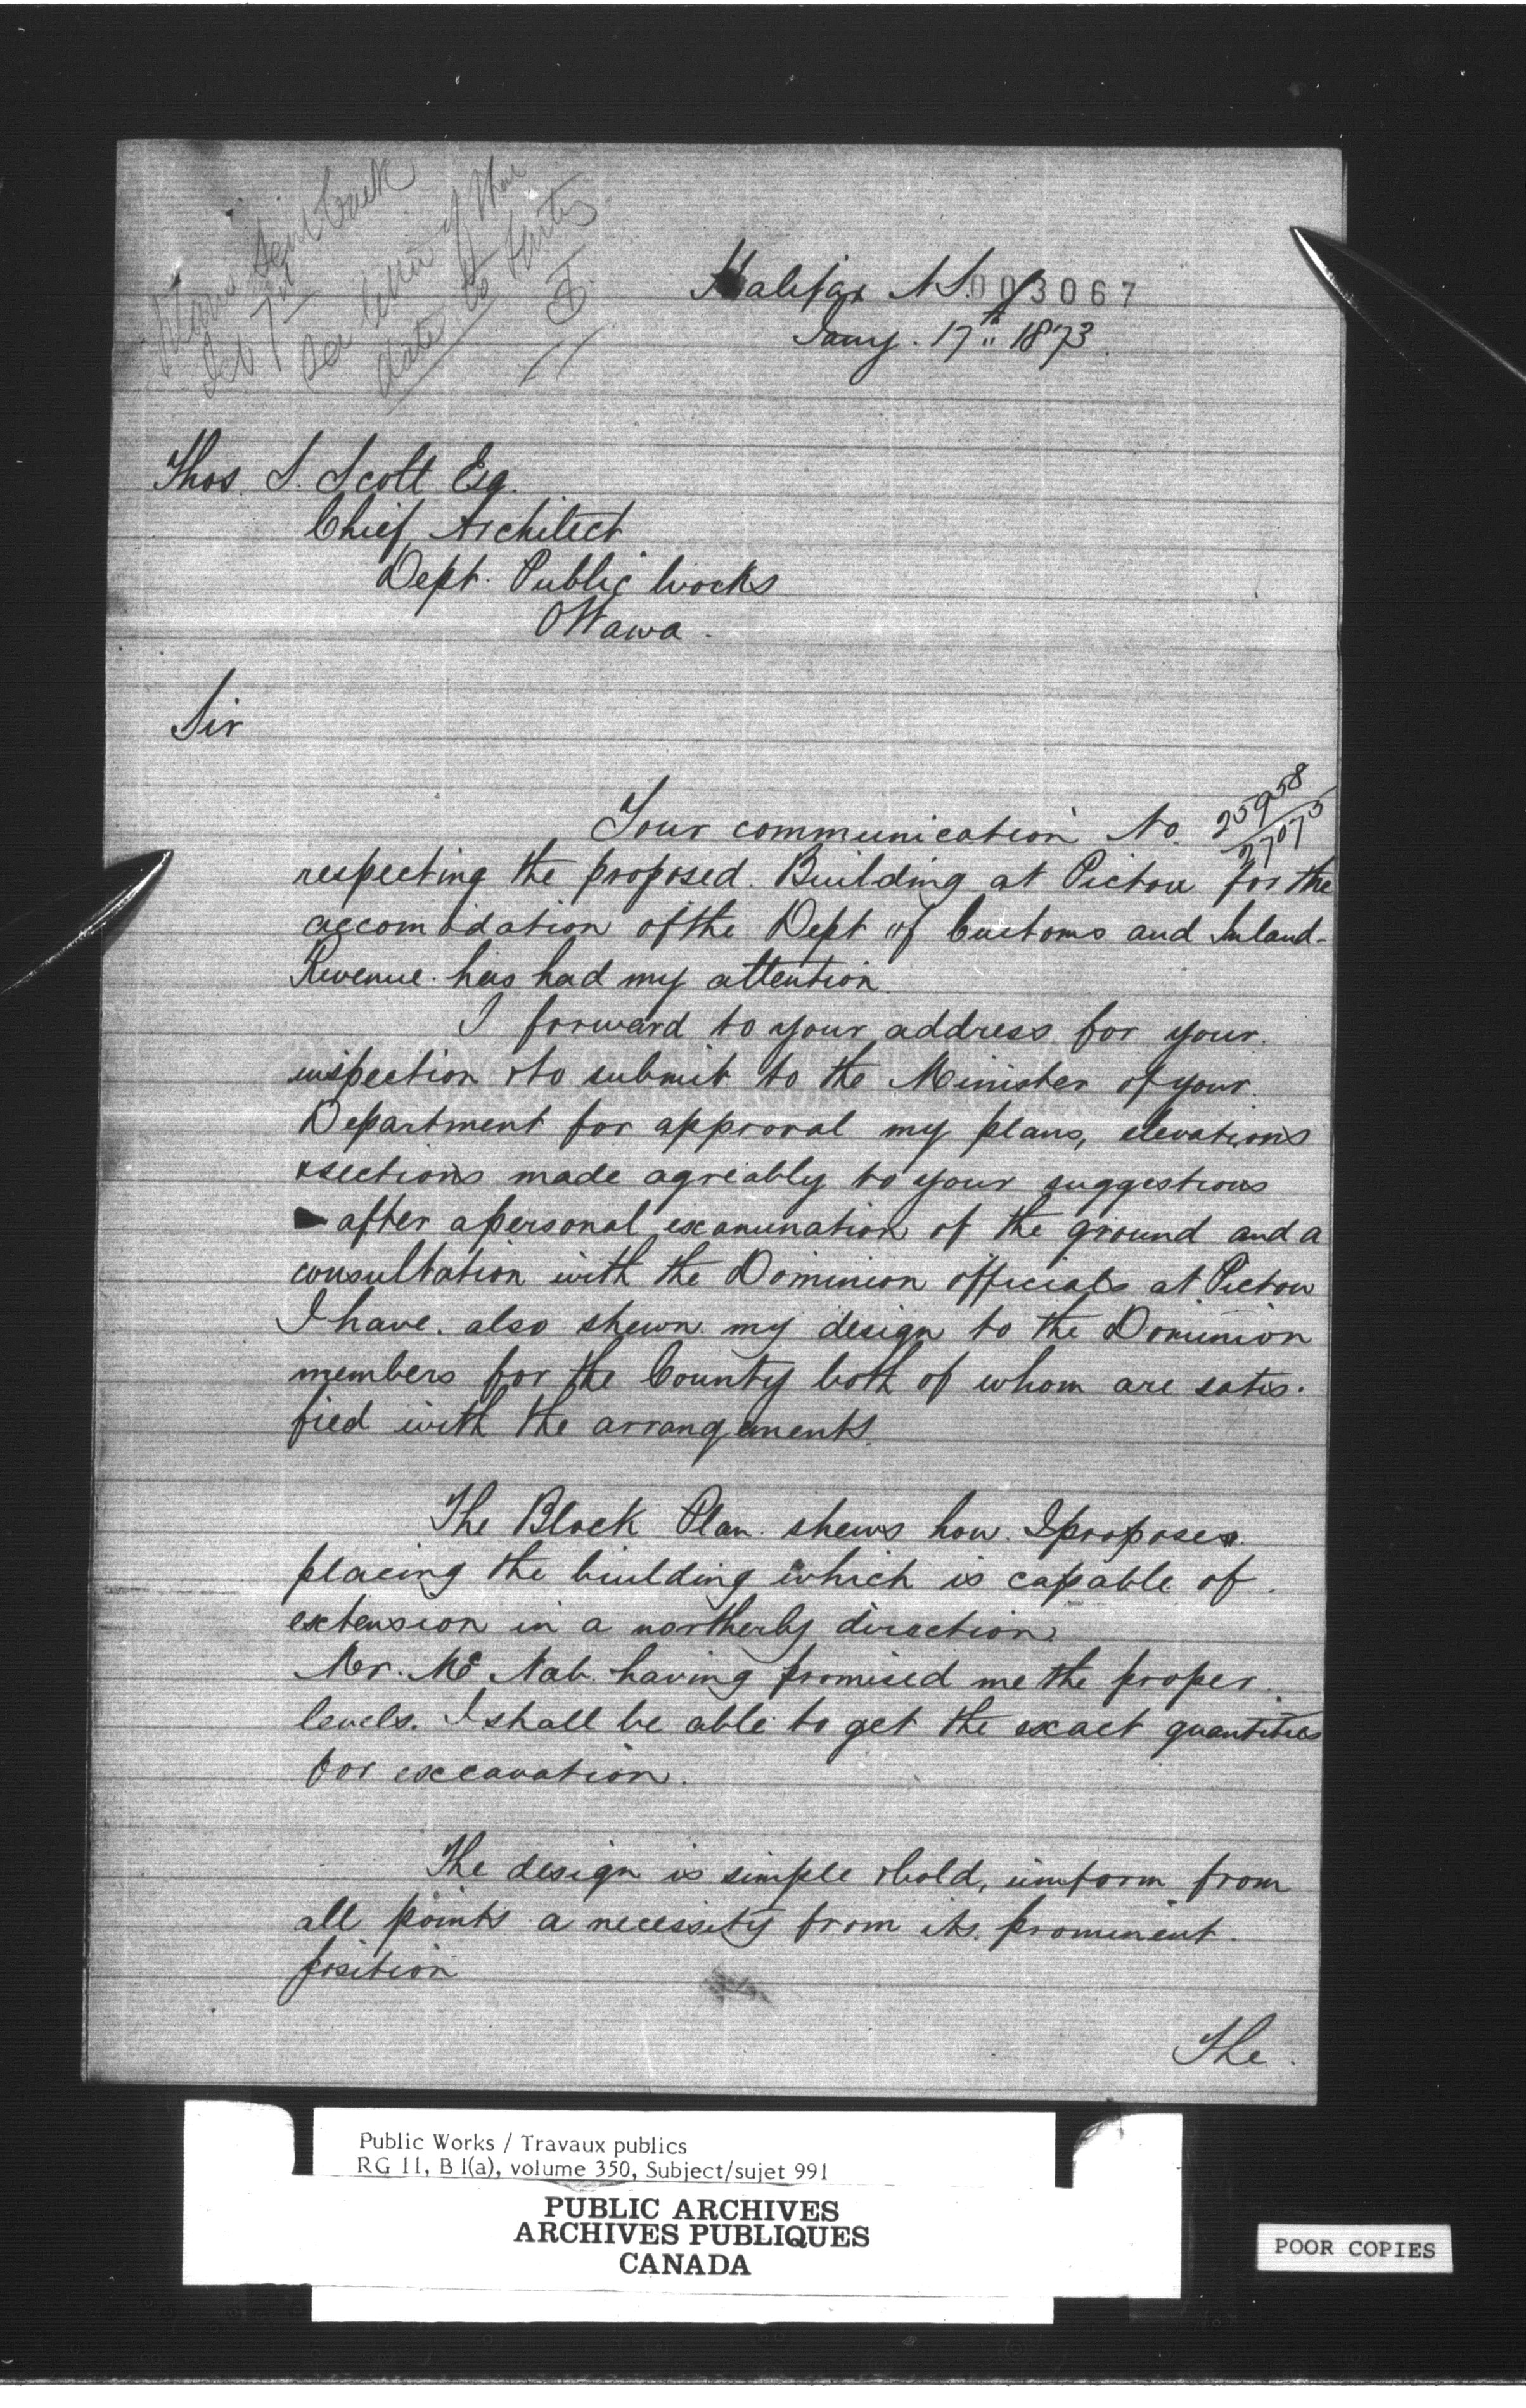 Plans sent back
Feb 7th
See letter of the
date to
Halifax N.S.
003067
Jany. 17th 1873
Thos. S. Scott Esq.
Chief Architect
Dept. Public Works
Ottawa.
Sir
Your communication No. 25958/27075
respecting the proposed Building at Pictou for the
accomodation of the Dept of Customs and Inland-
Revenue has had my attention
I forward to your address for your
inspection & to submit to the Minister of your
Department for approval my plans, elevations
& sections made agreably to your suggestions
after a personal examination of the ground and a
consultation with the Dominion officials at Pictou
I have also shewn my design to the Dominion
members for the County both of whom are satis-
fied with the arrangements.
The Block Plan shews how I propose
placing the building which is capable of
extension in a northerly direction.
Mr. McNab having promised me the proper
levels. I shall be able to get the exact quantities
for excavation.
The design is simple & bold, uniform from
all points a necessity from its prominent
position
The
Public Works / Travaux publics
RG 11, B 1(a), volume 350, Subject/sujet 991
PUBLIC ARCHIVES
ARCHIVES PUBLIQUES
CANADA
POOR COPIES